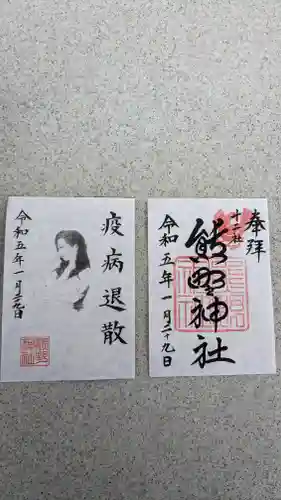 奉拝
十二社
熊野神社
令和五年一月二十九日
疫病退散
令和五年一月二十九日